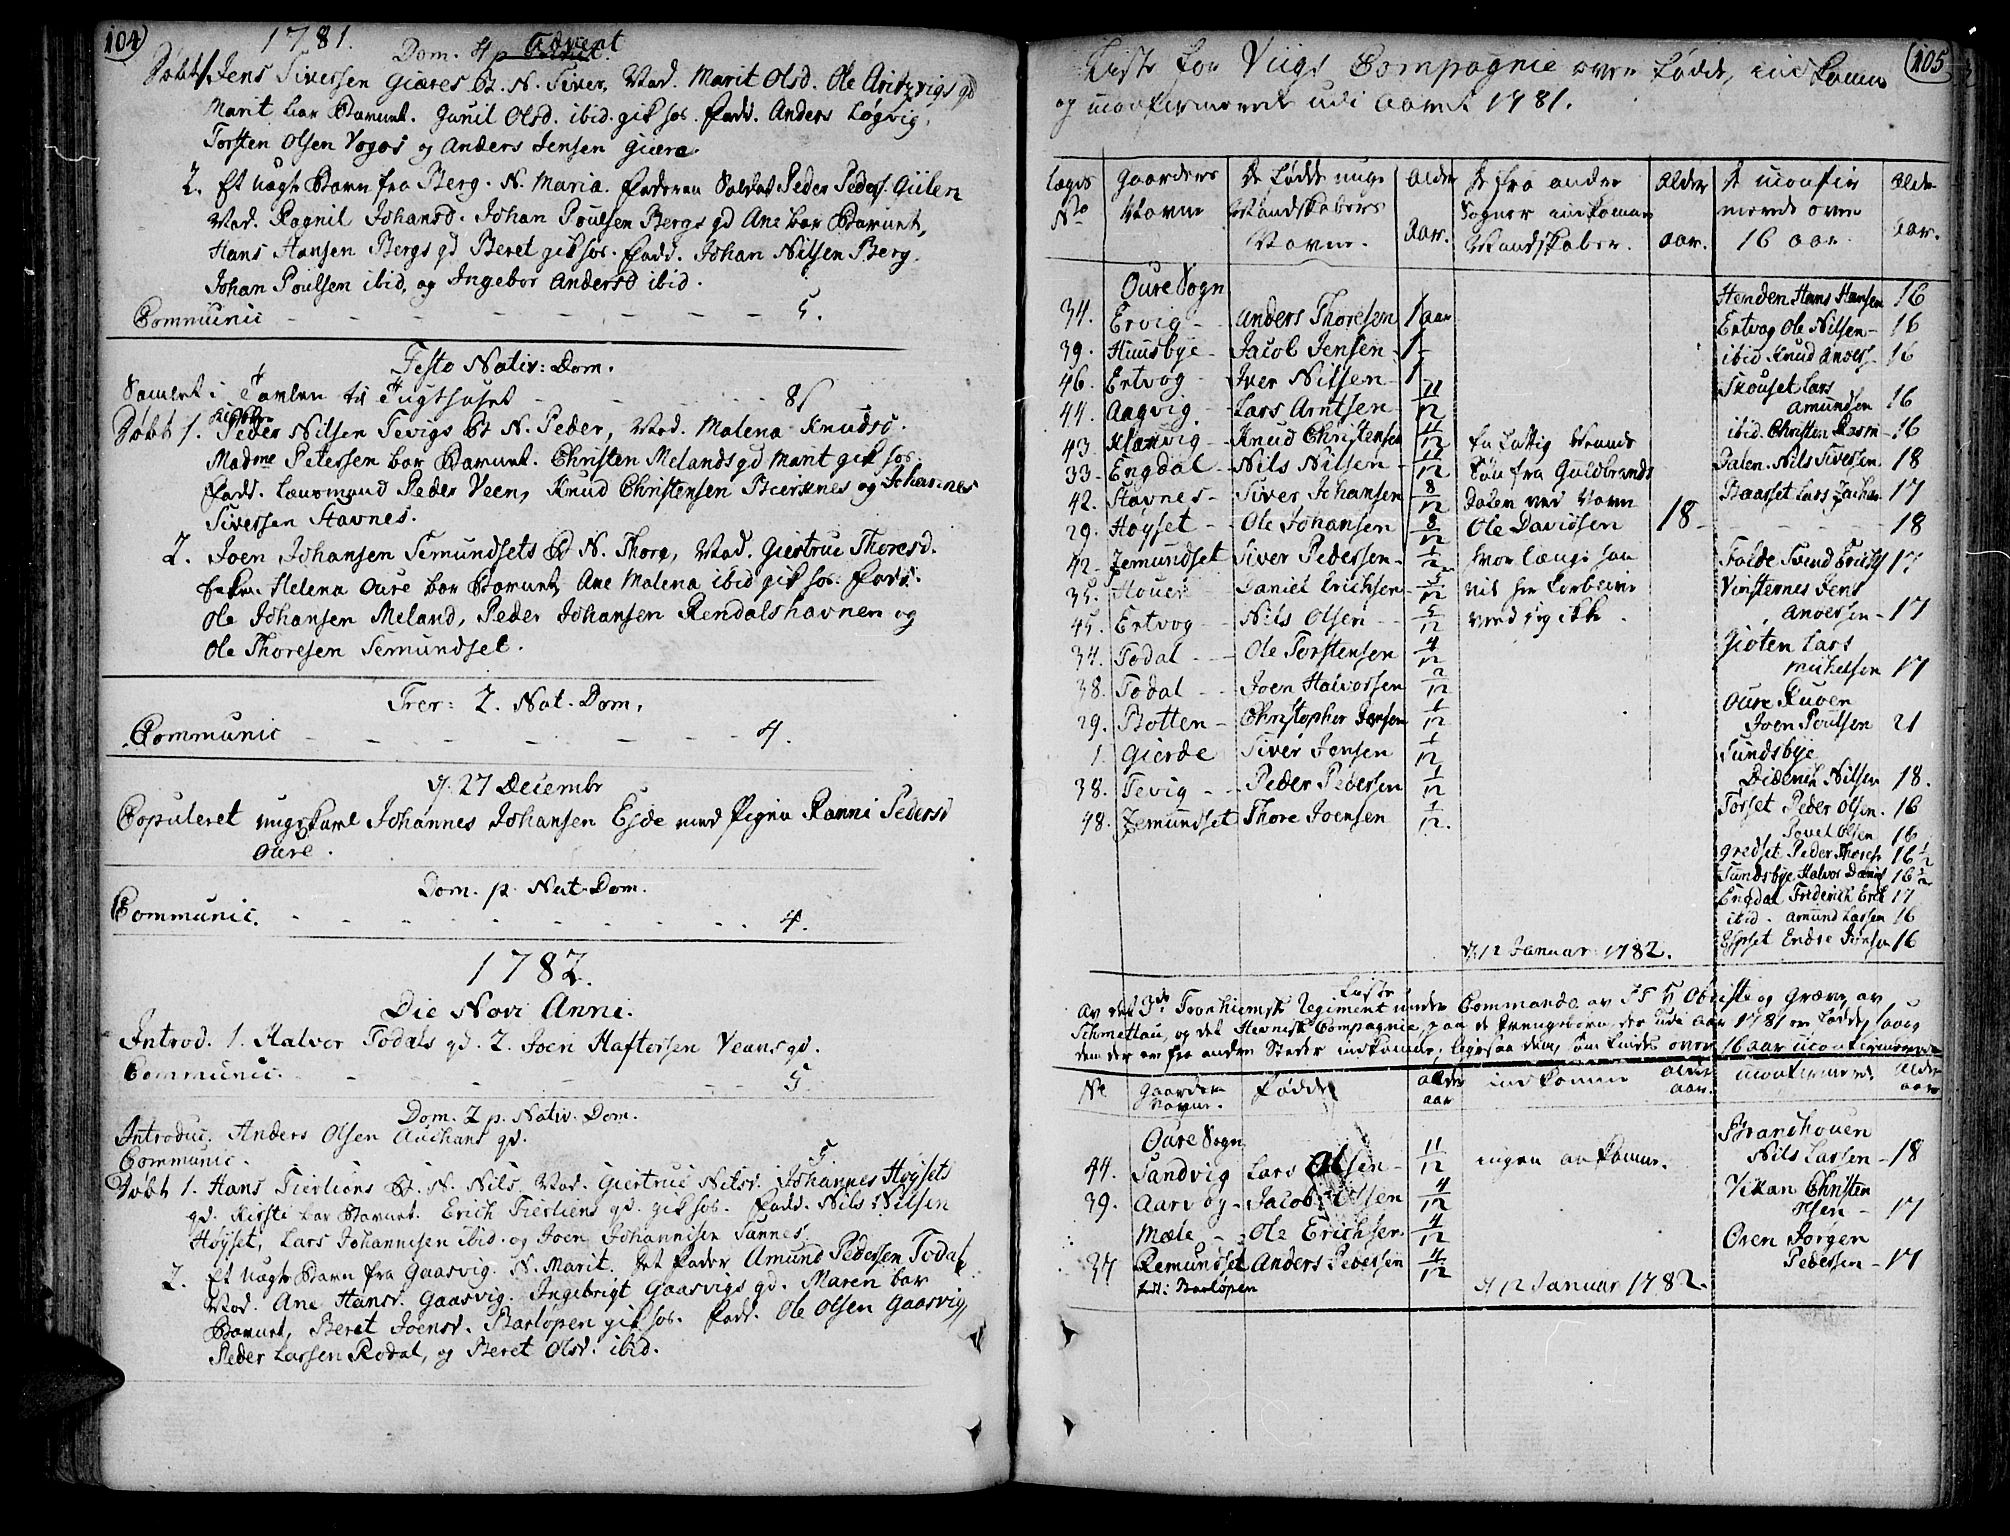 104
1781.
Dom. 4 Advent
Døbt 1. Jens Sivertsen Giæres B. N. Siver, Mod. Marit Olsd. Ole Aritzvigs gd
Marit bar Barnet. Gunil Olsd. ibid. gik hos. Fadd. Anders Løgvig,
Torsten Olsen Vogos og Anders Jensen Giære.
2. Et uægte Barn fra Berg. N. Maria. Faderen Soldat Peder Peders. Giilen
Mod. Ragnil Johansd. Johan Poulsen Bergs gd Ane bar Barnet,
Hans Hansen Bergs gd Beret gik hos. Fadd. Johan Nilsen Berg,
Johan Poulsen ibid, og Ingebor Andersd ibid.
Communic - - - - - - - 5.
Festo Nativ: Dom.
Samlet i Tavlen til Tugthuset - - - 8 ß
Døbt 1. Peder Nilsen Tevigs B N. Peder, Mod. Malena Knudsd.
Madme Petersen bar Barnet. Christen Melands gd Marit gik hos.
Fadd. Lensmand Peder Veen, Knud Christensen Bierknes og Johannes
Siversen Stavnes.
2. Joen Johansen Semundsets B N. Thore, Mod. Giertrue Thoresd.
Helena Oure bar Barnet, Ane Malena ibid gik hos. Fadd.
Ole Johansen Meland, Peder Johansen Rendalshavnen og
Ole Thoresen Semundset.
Frer: 2. Nat. Dom.
Communic - - - - - - 4.
d. 27 Decembr
Copuleret ungkarl Johannes Johansen Ejde med Pigen Ranni Pedersd
Oure.
Dom. p. Nat. Dom.
Communic. - - - - - - 4.
1782.
Die Novi Anni.
Introd. 1. Halvor Todals gd. 2. Joen Haftorsen Veans gd.
Communic. - - - - - 5
Dom. 2 p. Nativ. Dom.
Introduc. Anders Olsen Auchans gd.
Communic. 5
Døbt 1. Hans Tierliens B. N. Nils, Mod. Giertrue Nilsd. Johannes Høysets
gd. Kirsti bar Barnet. Erich Tierliens gd. gik hos. Fadd. Nils Nilsen
Høyset, Lars Johannisen ibid. og Joen Johannisen Sannes.
2. Et uægte Barn fra Gaasvig. N. Marit. Fader Amund Pedersen Todal
Mod. Ane Hansd. Gaasvig. Ingebrigt Gaasvigs gd. Maren bar
Barnet, Beret Joensd. Barløpen gik hos. Fadd. Ole Olsen Gaasvig,
Peder Larssen Rodal, og Beret Olsd. ibid.
105
Liste for Viigs Compagnie over Fødde, indkomne
og uconfirmerede udi Aaret 1781.
Lægds No | Gaardens Navne | De fødde unge Mandskabers Navne. | Alder Aar. | De fra andre Sogner indkomne Mandskaber. | Alder aar. | De uconfirmerede over 16 aar. | Alder Aar.
Oure Sogn
34. Ervig - Anders Thoresen 1 aar
39. Huusbye - Jacob Jensen - 1 -
46. Ertvog - Iver Nilsen - 1
44. Aagvig - Lars Arntsen 11/12
43. Klakvig - Knud Christensen 11/12
33. Engdal - Nils Nilsen - 11/12
42. Stavnes - Siver Johansen 8/12
29. Høyset - Ole Johansen 8/12
42. Semundset Siver Pedersen - 7/12
35. Houen - Daniel Erichsen - 5/12
45. Ertvog - Nils Olsen - - 5/12
34. Todal - - Ole Torstensen 4/12
38. Todal - - Joen Halvorsen 2/12
29. Botten - Christopher Jensen 1/12
1. Gierde Siver Jensen 1/12
38. Tevig - - Peder Pedersen 1/12
48. Semundset Thore Joensen 1/12.
En fattig Mands
Søn fra Guldbrands
Dalen ved Navn
Ole Davidsen 18 -
hvor længe han
vil her forblive
ved sig ikke.
Henden Hans Hansen 16
Ertvog Ole Nilsen - 16
ibid Knud Anders - 16
Skouset Lars
Amundsen 16
ibid. Christen Rasm - 16
Dalen. Nils Siversen 18
Baasset Lars Zachar 17
- - - 18
Folde Svend Erichs 17
Vinsternes Jens
Andersen - 17
Gioten Lars
Michelsen 17
Oure Ruøen
Joen Poulsen 21
Sundsbye
Diderich Nilsen 18.
Torset Peder Olsen. 16
Povel Olsen 18
Gredset Peder Thores 16 1/2
Sundsbye Halvor Daniel 16 1/2
Engdal Friderich Erik 17
ibid. Amund Larsen 16
Espset Endre Jonsen 16
d. 12 Januar 1782.
Liste
Av det 3de Tronhiemsk Regiment under Commando av Obriste og Græve av
Schmettau, og det Stevnisk Compagnie, paa de drengebørn, der udi Aar 1781 er fødde, saavel
dem der er fra andre Steder indkomne, ligesaa dem, som findes over 16 aar uconfirmerede
No | Gaardens Navne. | Fødde | Alder aar | indkomne | Alder aar. | uconfirmered | Alder aar
Oure Sogn
44. Sandvig Lars Olsen - 11/12 ingen ankomne.
39. Aarvog - Jacob Olsen 4/12
Mæle - Ole Erichsen 4/12
37 Remundset Anders Pedersen 4/12
Barløpen
Brandhouen
Nils Larsen - 18
Vikan Christen
Olsen - 17
Oren Jørgen
Pedersen - 17
d. 12 Januar 1782.